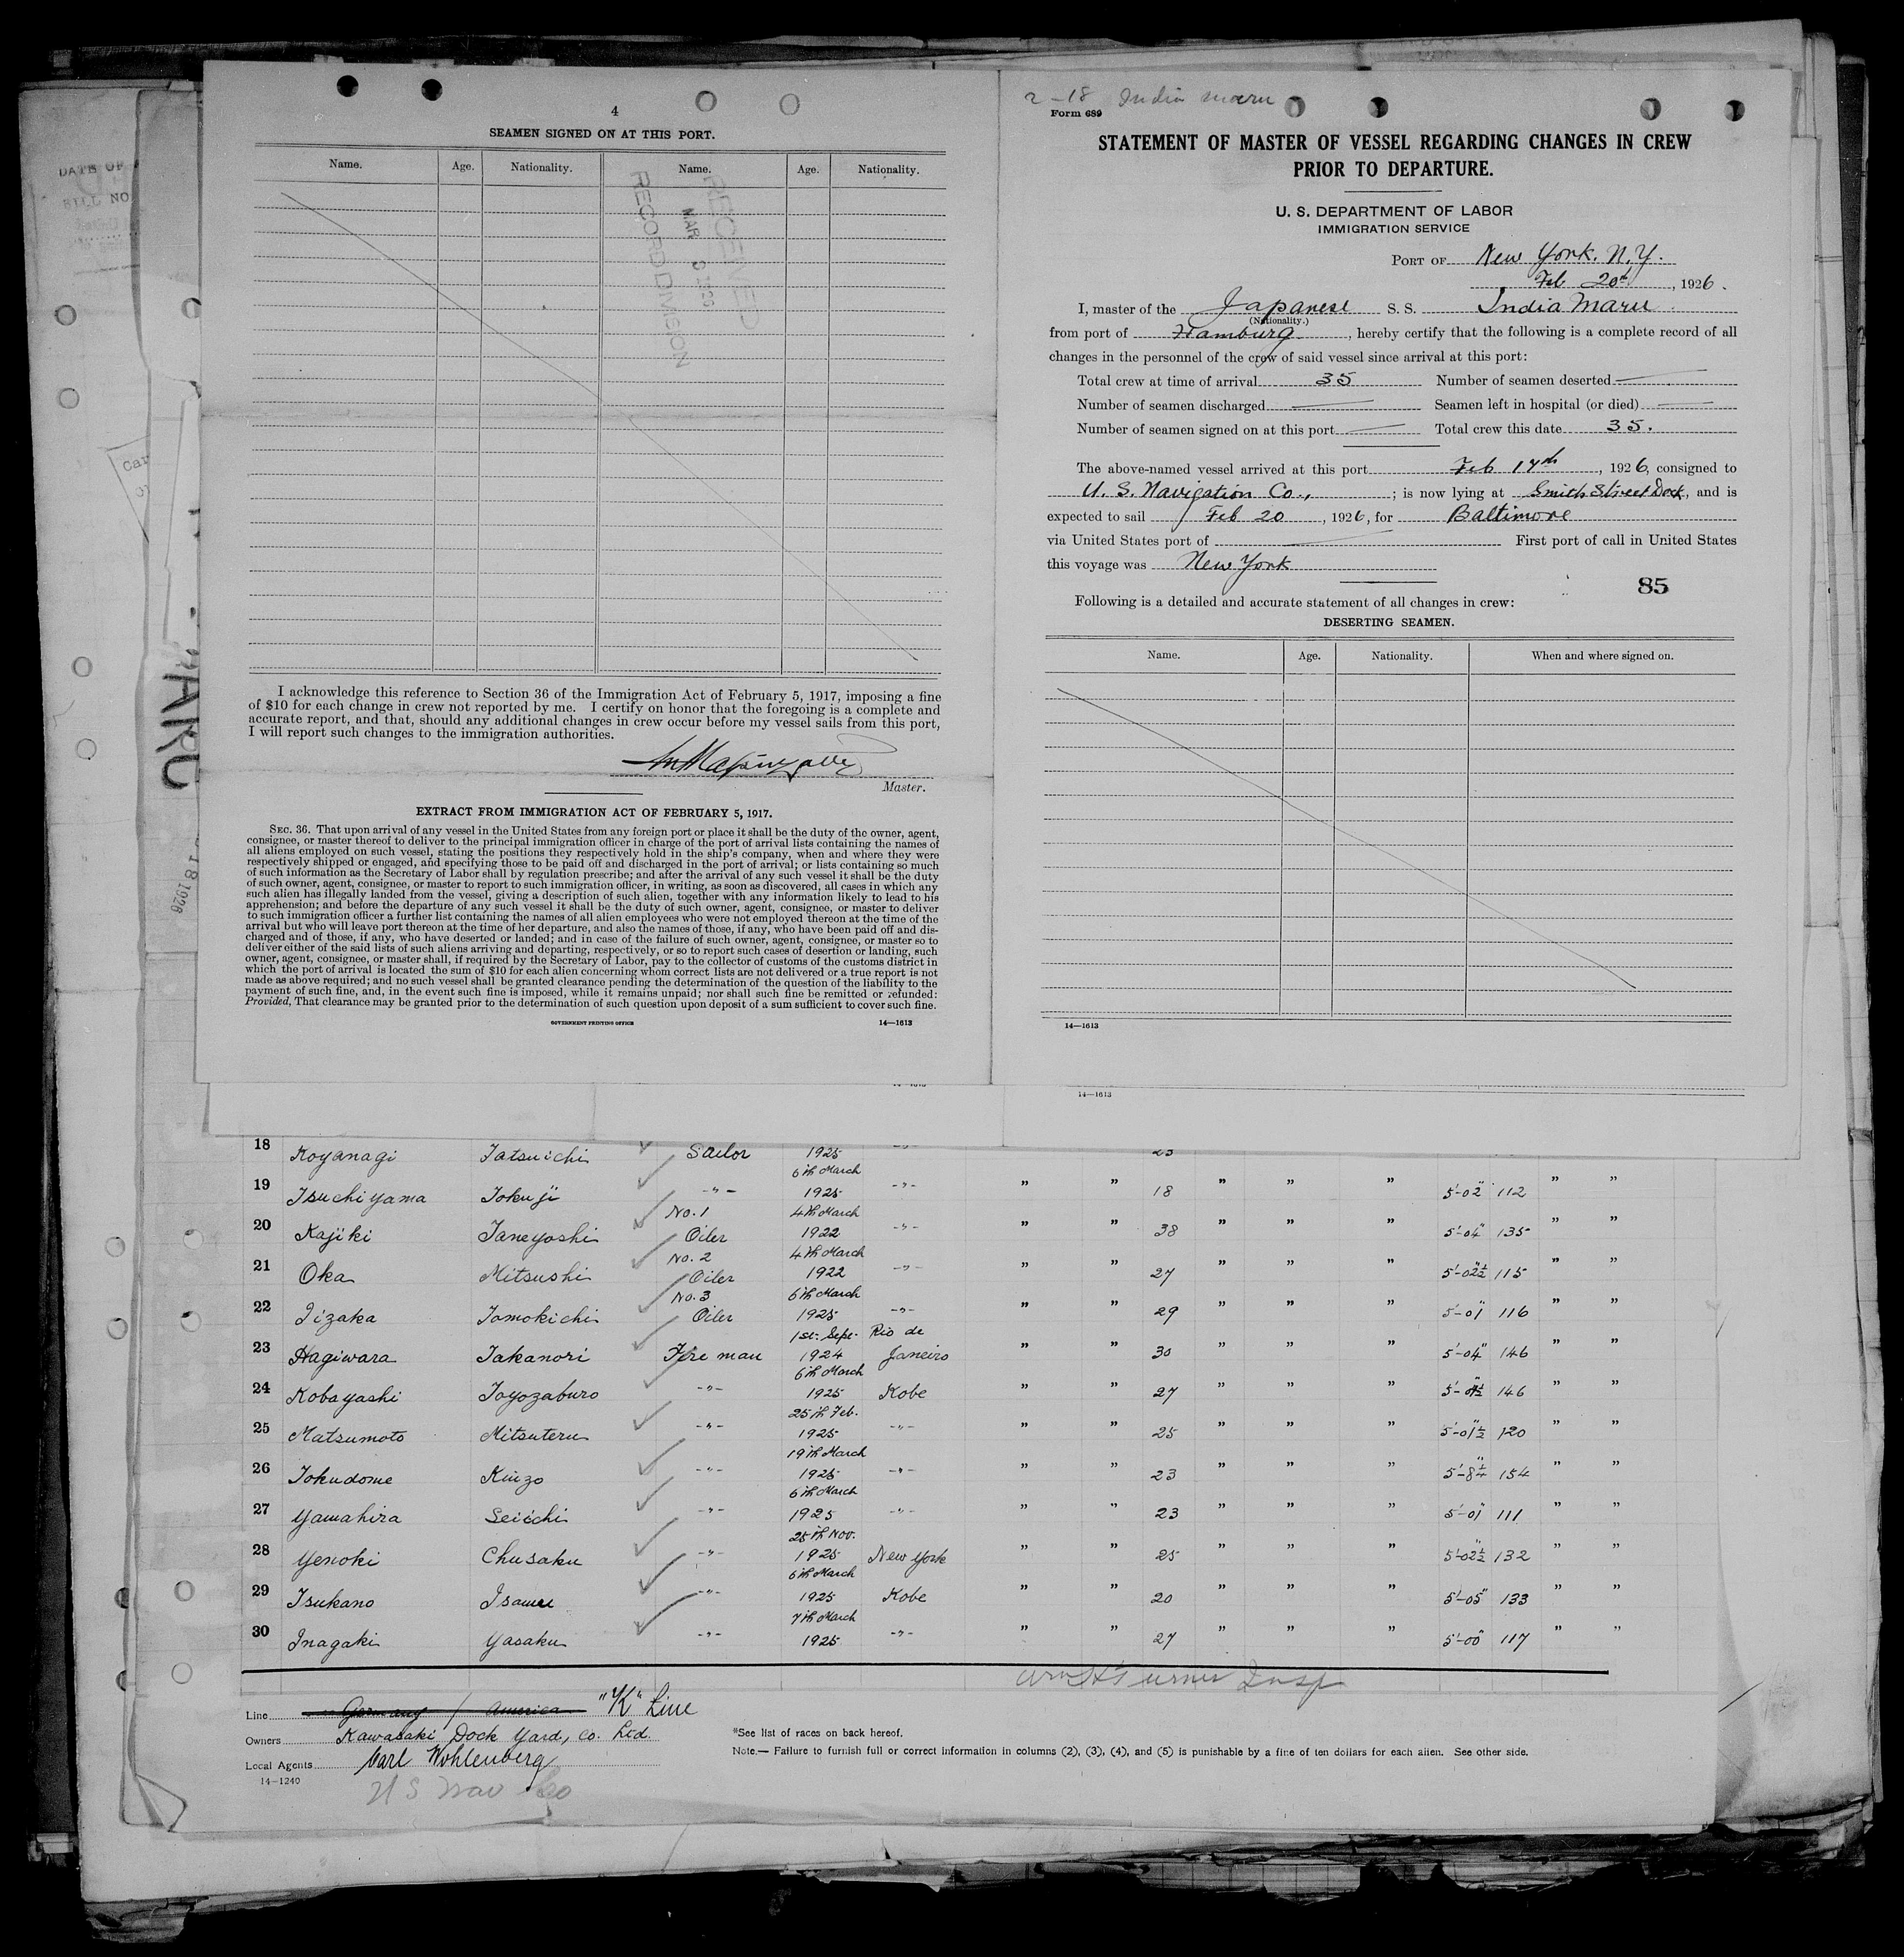 4
SEAMEN SIGNED ON AT THIS PORT.
Name. Age. Nationality. Name. Age. Nationality.
RECEIVED
MAR
RECORD DIVISION
I acknowledge this reference to Section 36 of the Immigration Act of February 5, 1917, imposing a fine
of $10 for each change in crew not reported by me. I certify on honor that the foregoing is a complete and
accurate report, and that, should any additional changes in crew occur before my vessel sails from this port,
I will report such changes to the immigration authorities.
Master.
EXTRACT FROM IMMIGRATION ACT OF FEBRUARY 5, 1917.
SEC. 36. That upon arrival of any vessel in the United States from any foreign port or place it shall be the duty of the owner, agent,
consignee, or master thereof to deliver to the principal immigration officer in charge of the port of arrival lists containing the names of
all aliens employed on such vessel, stating the positions they respectively hold in the ship's company, when and where they were
respectively shipped or engaged, and specifying those to be paid off and discharged in the port of arrival; or lists containing so much
of such information as the Secretary of Labor shall by regulation prescribe; and after the arrival of any such vessel it shall be the duty
of such owner, agent, consignee, or master to report to such immigration officer, in writing, as soon as discovered, all cases in which any
such alien has illegally landed from the vessel, giving a description of such alien, together with any information likely to lead to his
apprehension; and before the departure of any such vessel it shall be the duty of such owner, agent, consignee, or master to deliver
to such immigration officer a further list containing the names of all alien employees who were not employed thereon at the time of the
arrival but who will leave port thereon at the time of her departure, and also the names of those, if any, who have been paid off and dis-
charged and of those, if any, who have deserted or landed; and in case of the failure of such owner, agent, consignee, or master so to
deliver either of the said lists of such aliens arriving and departing, respectively, or so to report such cases of desertion or landing, such
owner, agent, consignee, or master shall, if required by the Secretary of Labor, pay to the collector of customs of the customs district in
which the port of arrival is located the sum of $10 for each alien concerning whom correct lists are not delivered or a true report is not
made as above required; and no such vessel shall be granted clearance pending the determination of the question of the liability to the
payment of such fine, and, in the event such fine is imposed, while it remains unpaid; nor shall such fine be remitted or refunded:
Provided, That clearance may be granted prior to the determination of such question upon deposit of a sum sufficient to cover such fine.
GOVERNMENT PRINTING OFFICE 14—1613
2-18 India Maru
Form 689
STATEMENT OF MASTER OF VESSEL REGARDING CHANGES IN CREW
PRIOR TO DEPARTURE.
U. S. DEPARTMENT OF LABOR
IMMIGRATION SERVICE
PORT OF New York. N.Y.
Feb 20th, 1926.
I, master of the Japanese S. S. India Maru
(Nationality.)
from port of Hamburg, hereby certify that the following is a complete record of all
changes in the personnel of the crew of said vessel since arrival at this port:
Total crew at time of arrival 35 Number of seamen deserted —
Number of seamen discharged — Seamen left in hospital (or died) —
Number of seamen signed on at this port — Total crew this date 35.
The above-named vessel arrived at this port Feb 17th, 1926, consigned to
U. S. Navigation Co., ; is now lying at Smith Street Dock, and is
expected to sail Feb 20, 1926, for Baltimore
via United States port of — First port of call in United States
this voyage was New York
85
Following is a detailed and accurate statement of all changes in crew:
DESERTING SEAMEN.
Name. Age. Nationality. When and where signed on.
14—1613
14—1613
DATE OF
BILL NO
MARU
18 1926
18 Koyanagi Tatsuichi Sailor 1925 -"- 23
19 Tsuchiyama Tokuji -"- 6th March 1925 -"- " " 18 " " " 5'-02" 112 " "
20 Kajiki Taneyoshi No. 1 Oiler 4th March 1922 -"- " " 38 " " " 5'-04" 135 " "
21 Oka Mitsushi No. 2 Oiler 4th March 1922 -"- " " 27 " " " 5'-02½" 115 " "
22 Iizaka Tomokichi No. 3 Oiler 6th March 1925 -"- " " 29 " " " 5'-01" 116 " "
23 Hagiwara Takanori Fire man 1st. Sept. 1924 Rio de Janeiro " " 30 " " " 5'-04" 146 " "
24 Kobayashi Toyozaburo -"- 6th March 1925 Kobe " " 27 " " " 146 " "
25 Matsumoto Mitsuteru -"- 25th Feb. 1925 -"- " " 25 " " " 5'-01½" 120 " "
26 Tokudome Kinzo -"- 19th March 1925 -"- " " 23 " " " 5'-8¼" 154 " "
27 Yamahira Seiichi -"- 6th March 1925 -"- " " 23 " " " 5'-01" 111 " "
28 Yenoki Chusaku -"- 25th Nov. 1925 New York " " 25 " " " 5'-02½" 132 " "
29 Tsukano Isamu -"- 6th March 1925 Kobe " " 20 " " " 5'-05" 133 " "
30 Inagaki Yasaku -"- 7th March 1925 -"- " " 27 " " " 5'-00" 117 " "
Wm H Turner Insp
Line Germany / America "K" Line
Owners Kawasaki Dock Yard, Co. Ltd.
Local Agents Carl Wohlenberg
14-1240
U S Nav Co
*See list of races on back hereof.
Note.— Failure to furnish full or correct information in columns (2), (3), (4), and (5) is punishable by a fine of ten dollars for each alien. See other side.